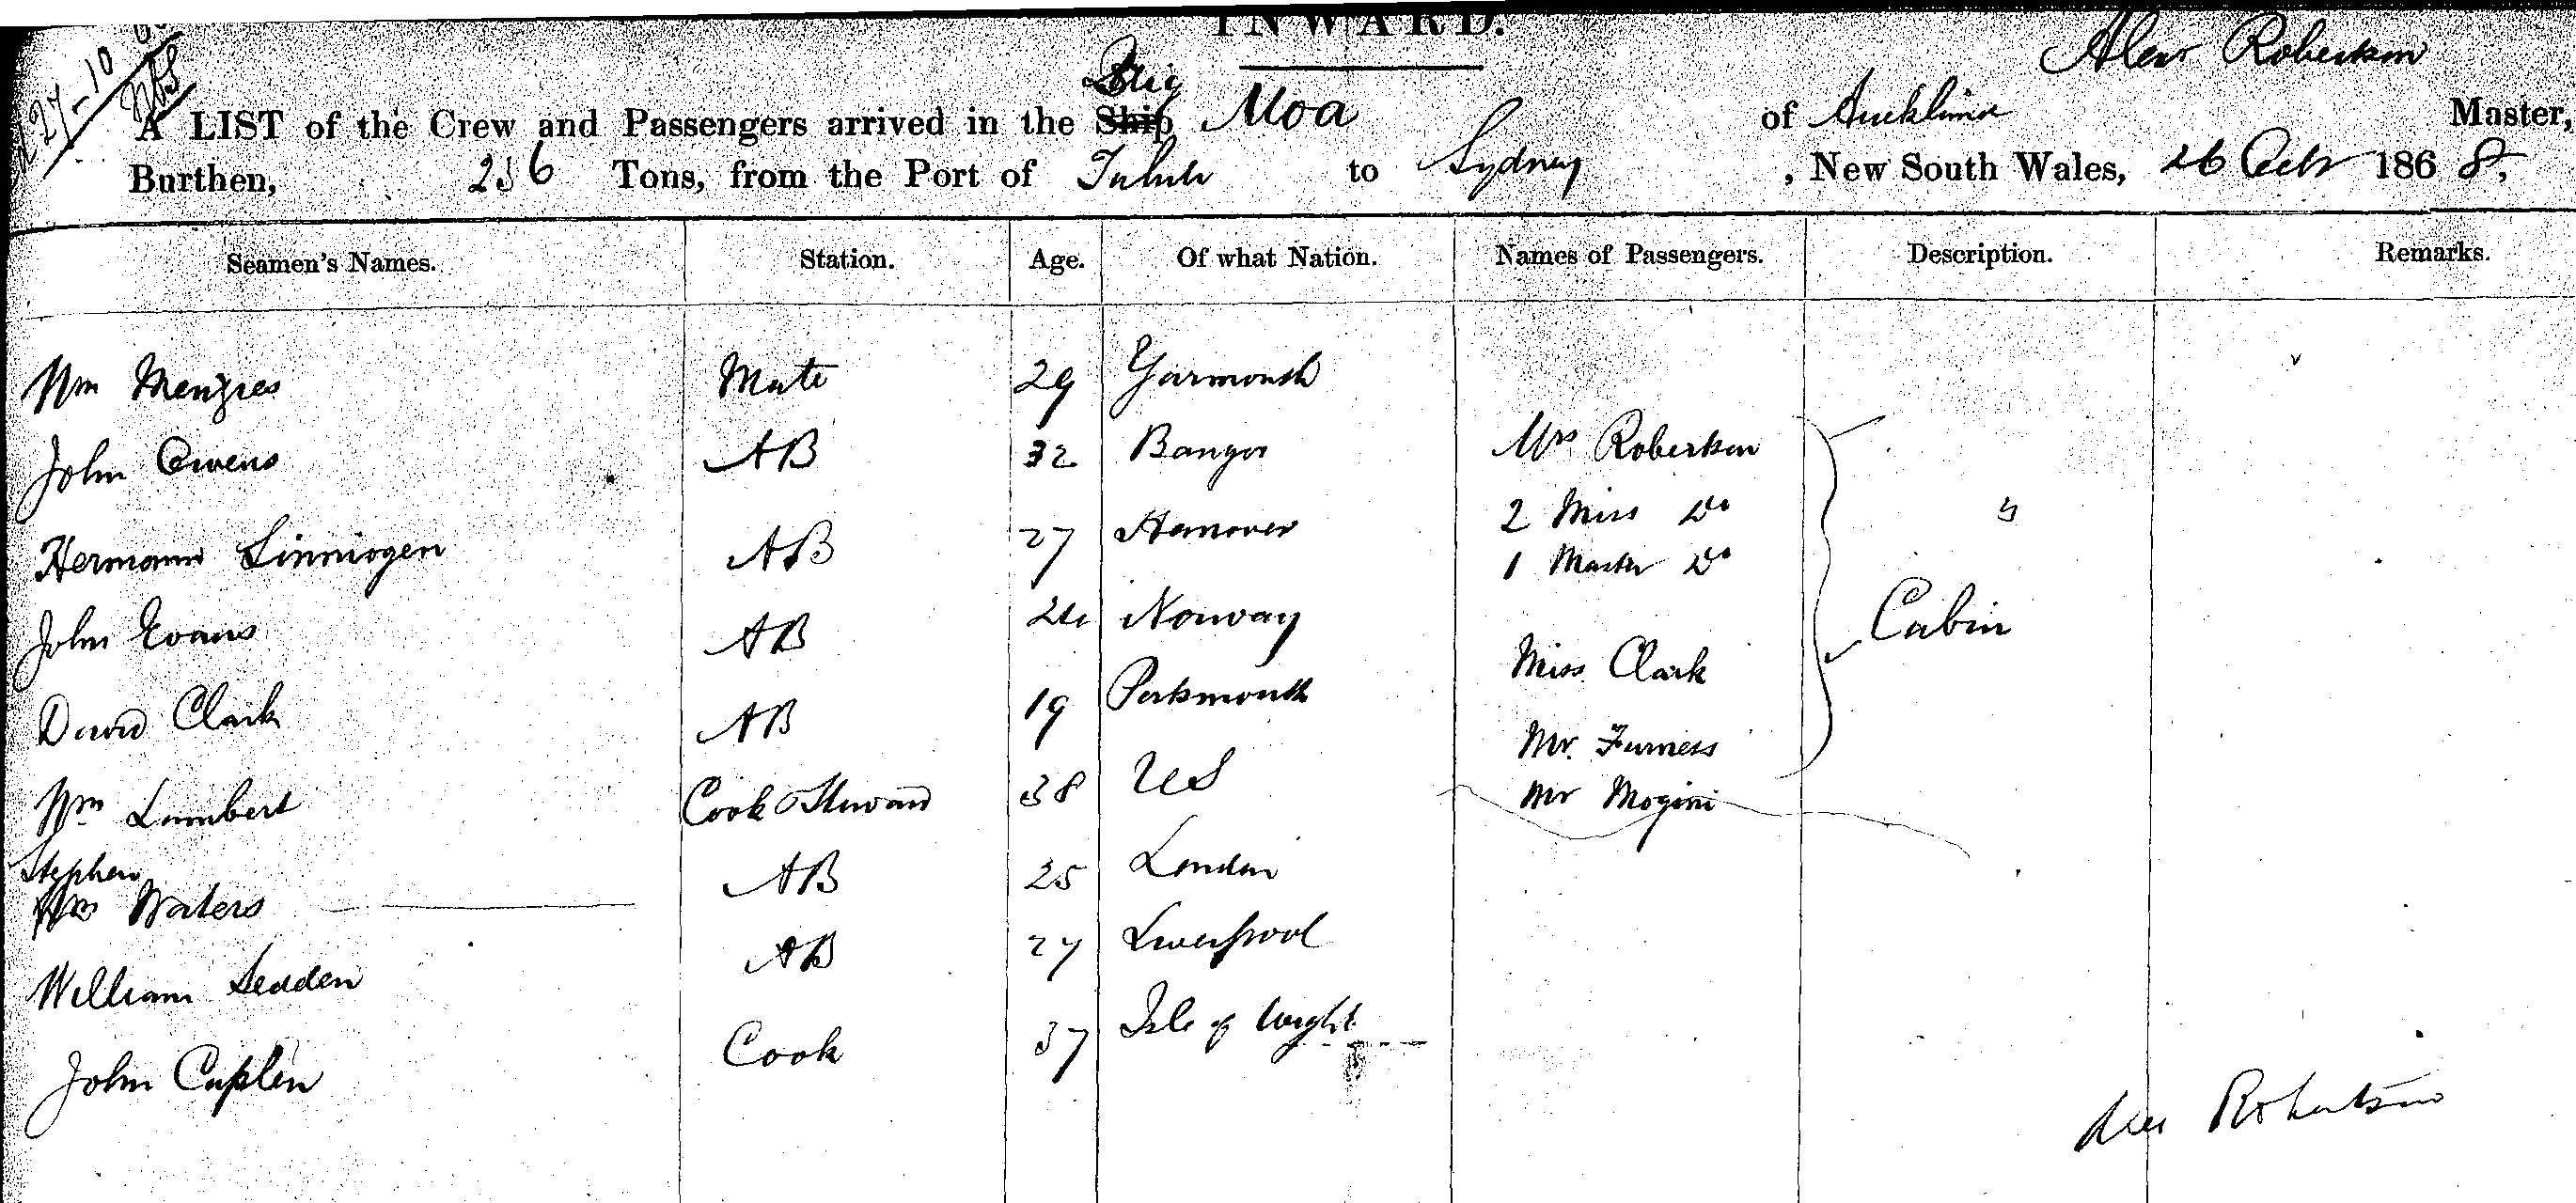 INWARD.
27-10
Alexr Robertson
Brig
A LIST of the Crew and Passengers arrived in the Ship Moa of Auckland Master,
Burthen, 236 Tons, from the Port of to Sydney , New South Wales, 26 Octr 1868,
Seamen's Names. Station. Age. Of what Nation. Names of Passengers. Description. Remarks.
Wm Menzies Mate 29 Yarmouth
John Owens AB 32 Bangor Mrs Robertson
Hermann Sinniogen AB 27 Hanover 2 Miss Do
1 Master Do
John Evans AB Norway Cabin
Miss Clark
David Clark AB 19 Portsmouth
Mr. Furness
Wm Lambert Cook & Steward 38 US
Mr Mogini
Stephen
Wm Waters AB 25 London
William Seaden AB 27 Liverpool
John Caplen Cook 37 Isle of Wight
Alex Robertson